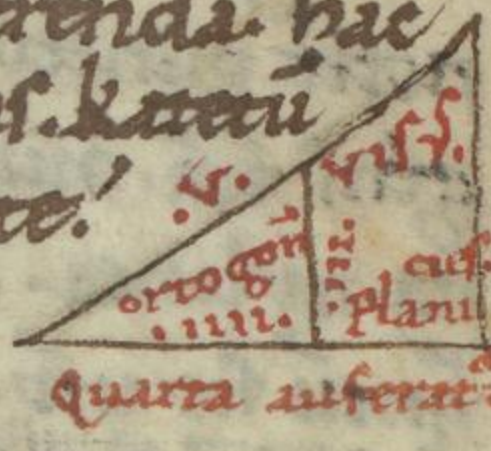 erenda. hac
ſ. katetū
te!
.v. viſſ.
ortogon .iii. cuſ.
.iiii. Plani
Quarta auferat